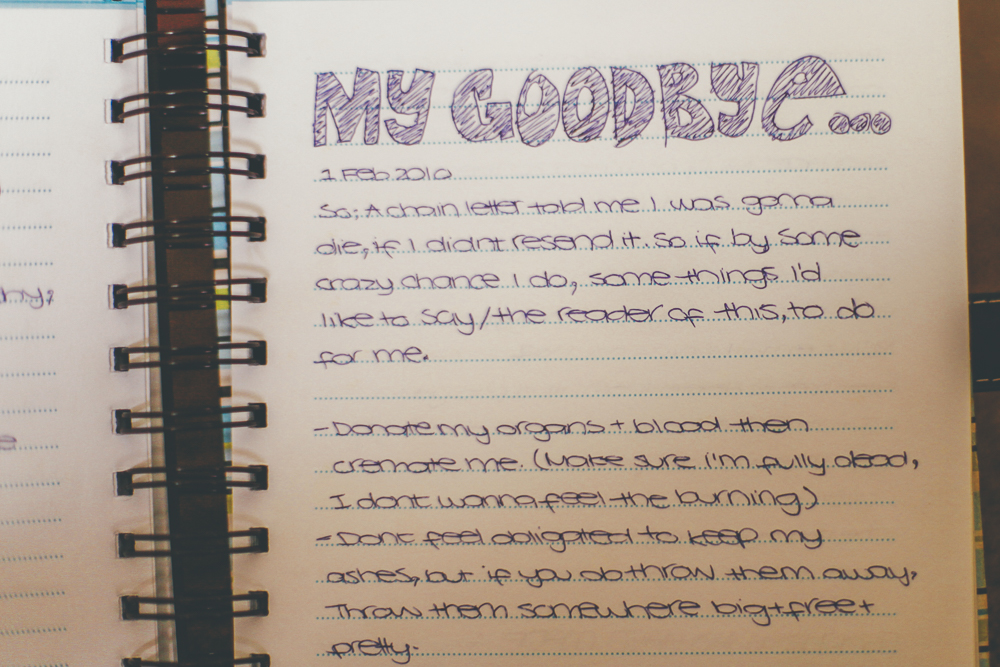 MY GOODBYE...
1 Feb 2010
So; A chain letter told me I was gonna
die, if I didnt resend it. So if by some
crazy chance I do, some things I'd
like to say/the reader of this, to do
for me.
- Donate my organs + blood then
cremate me. (Make sure I'm fully dead,
I dont wanna feel the burning)
- Dont feel obligated to keep my
ashes, but if you do throw them away,
Throw them somewhere big+free+
pretty.